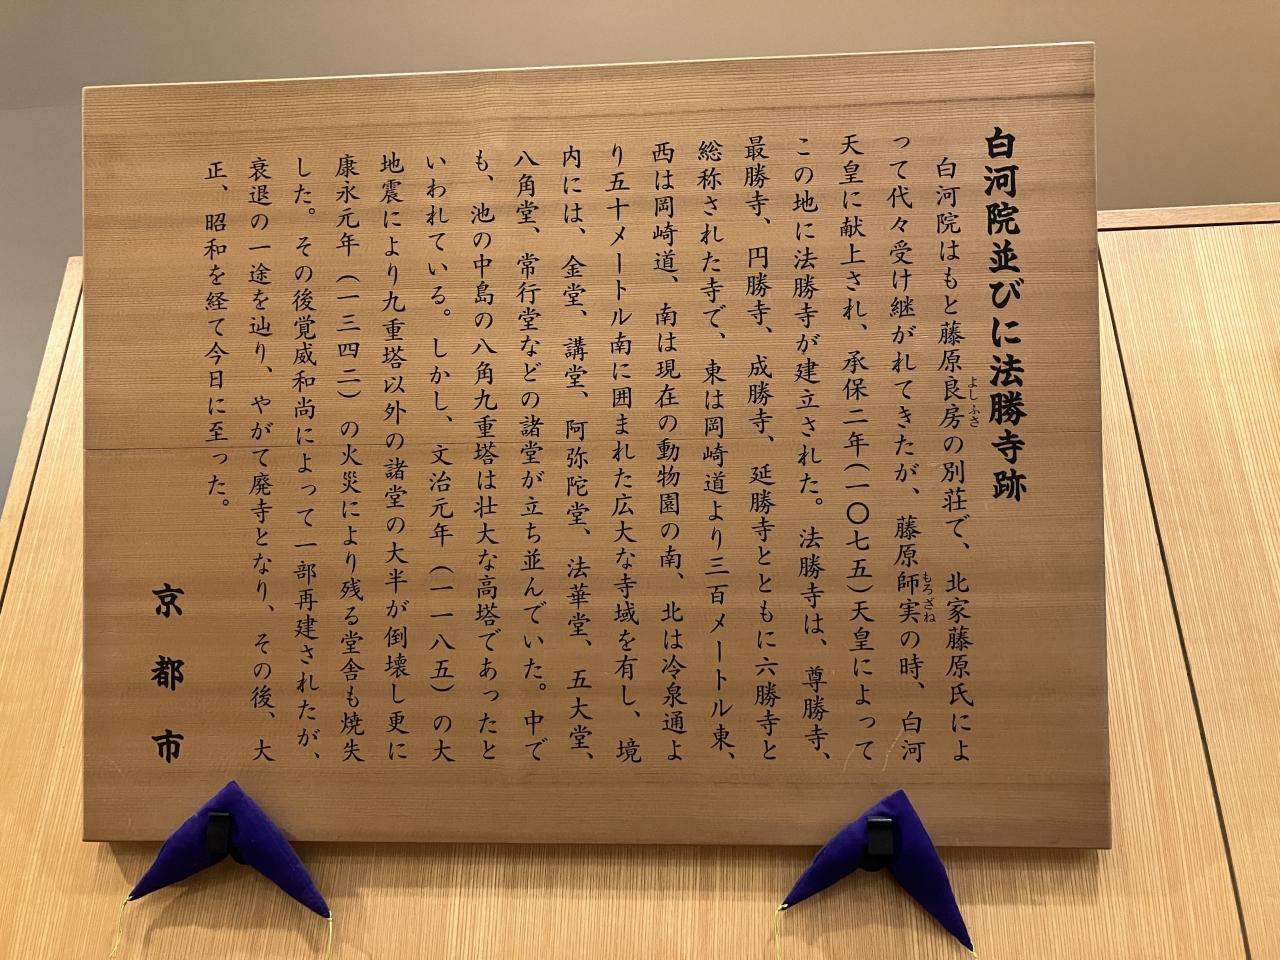 白河院並びに法勝寺跡
白河院はもと藤原良房の別荘で、北家藤原氏によ
よしふさ
って代々受け継がれてきたが、藤原師実の時、白河
もろざね
天皇に献上され、承保二年(一〇七五)天皇によって
この地に法勝寺が建立された。法勝寺は、尊勝寺、
最勝寺、円勝寺、成勝寺、延勝寺とともに六勝寺と
総称された寺で、東は岡崎道より三百メートル東、
西は岡崎道、南は現在の動物園の南、北は冷泉通よ
り五十メートル南に囲まれた広大な寺域を有し、境
内には、金堂、講堂、阿弥陀堂、法華堂、五大堂、
八角堂、常行堂などの諸堂が立ち並んでいた。中で
も、池の中島の八角九重塔は壮大な高塔であったと
いわれている。しかし、文治元年(一一八五)の大
地震により九重塔以外の諸堂の大半が倒壊し更に
康永元年(一三四二)の火災により残る堂舎も焼失
した。その後覚威和尚によって一部再建されたが、
衰退の一途を辿り、やがて廃寺となり、その後、大
正、昭和を経て今日に至った。
京都市